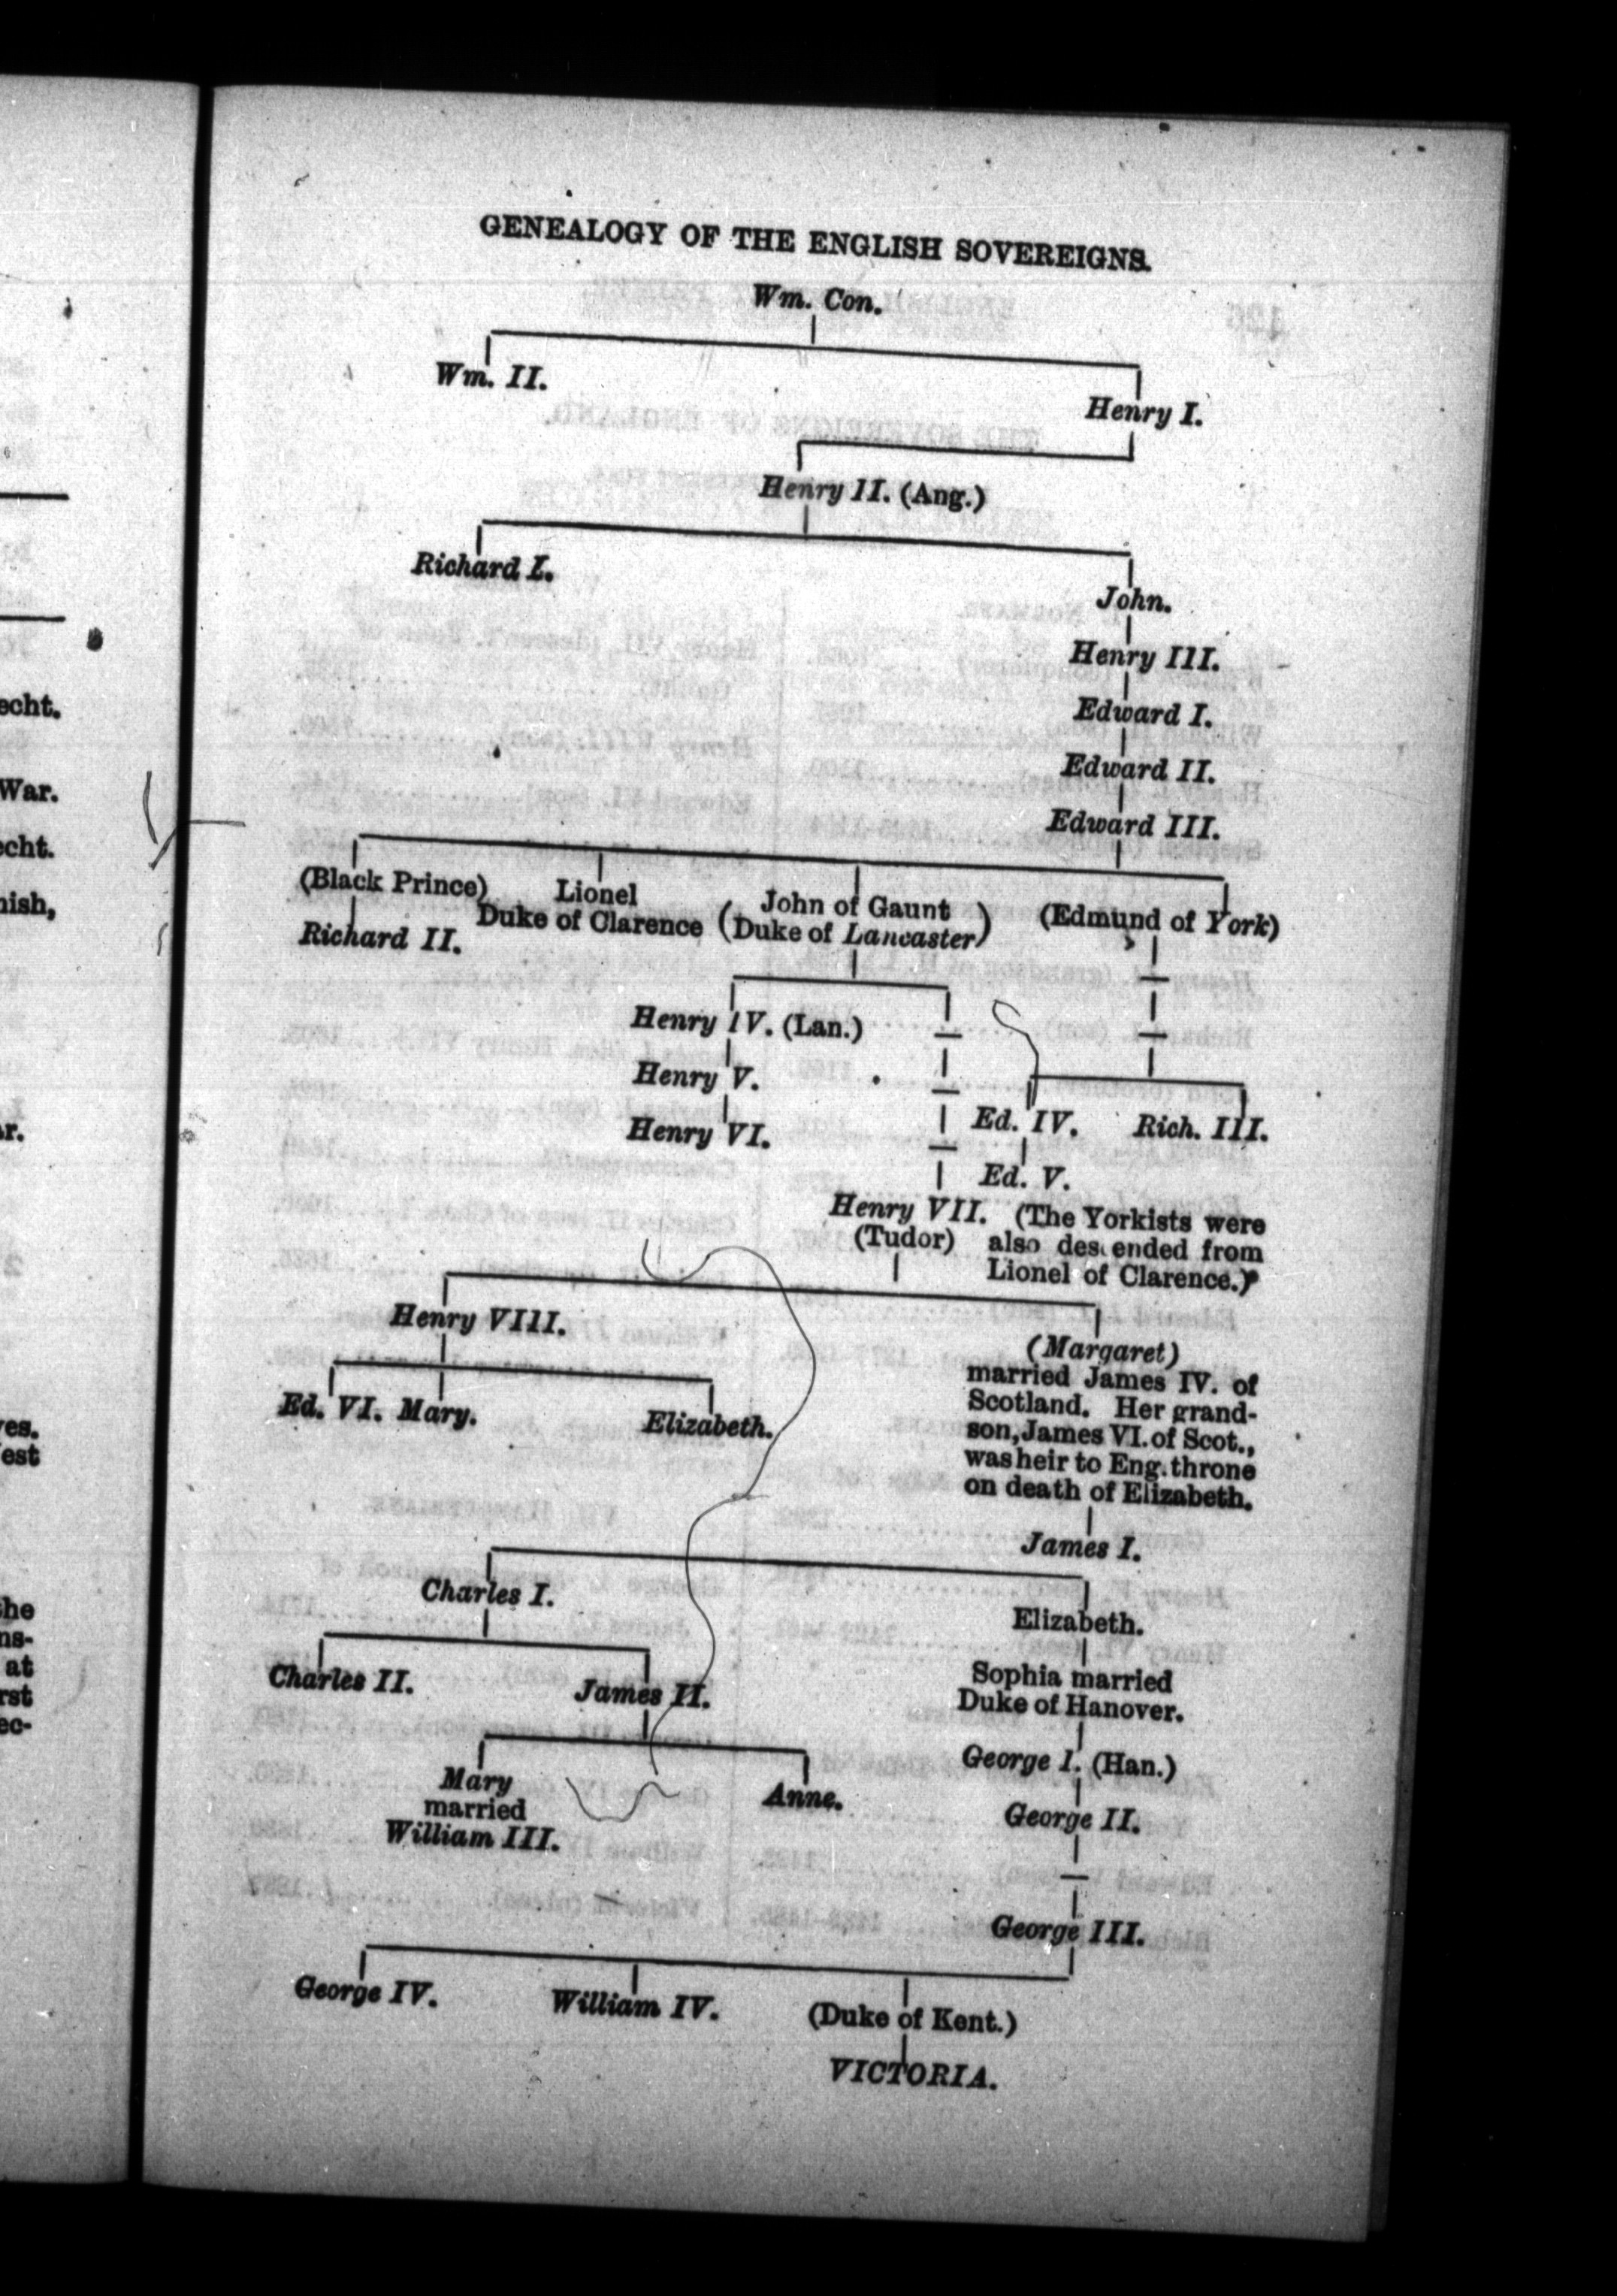 GENEALOGY OF THE ENGLISH SOVEREIGNS.
Wm. Con.
Wm. II.
Henry I.
Henry II. (Ang.)
Richard I.
John.
Henry III.
Edward I.
Edward II.
Edward III.
(Black Prince)
Richard II.
Lionel
Duke of Clarence
(John of Gaunt
Duke of Lancaster)
(Edmund of York)
Henry IV. (Lan.)
Henry V.
Henry VI.
Ed. IV. Rich. III.
Ed. V.
Henry VII.
(Tudor)
(The Yorkists were
also descended from
Lionel of Clarence.)
Henry VIII.
(Margaret)
married James IV. of
Scotland. Her grand-
son, James VI. of Scot.,
was heir to Eng. throne
on death of Elizabeth.
Ed. VI. Mary. Elizabeth.
James I.
Charles I.
Elizabeth.
Charles II. James II.
Sophia married
Duke of Hanover.
Mary
married
William III.
Anne.
George I. (Han.)
George II.
George III.
George IV. William IV. (Duke of Kent.)
VICTORIA.
echt.
War.
echt.
nish,
ar.
ves.
est
the
ns-
at
rst
ec-